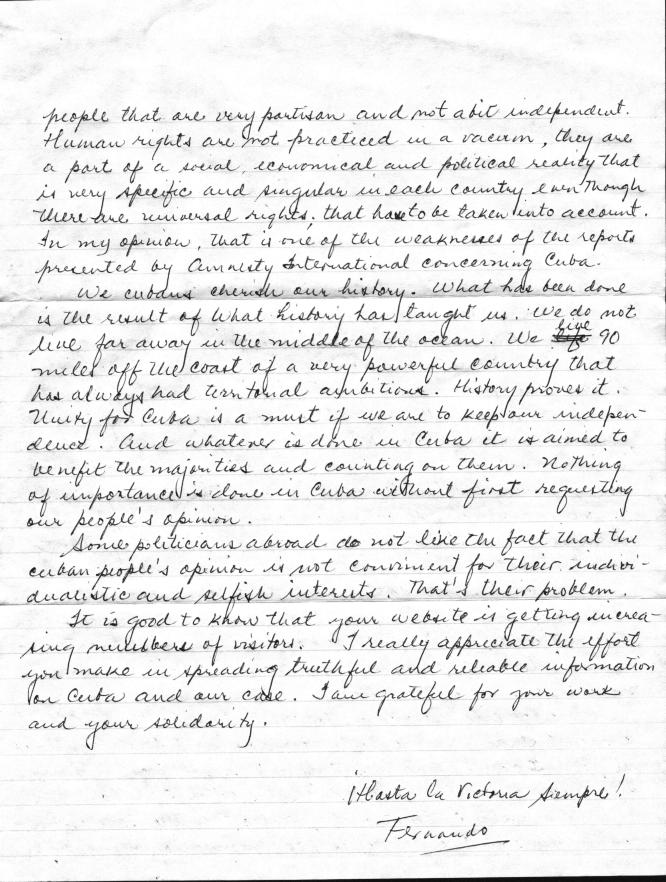 people that are very partisan and not a bit independent.
Human rights are not practiced in a vacum, they are
a part of a social, economical and political reality that
is very specific and singular in each country even though
there are universal rights, that have to be taken into account.
In my opinion, that is one of the weaknesses of the reports
presented by Amnesty International concerning Cuba.
We cubans cherish our history. What has been done
is the result of what history has taught us. We do not
live far away in the middle of the ocean. We live 90
miles off the coast of a very powerful country that
has always had territorial ambitions. History proves it.
Unity for Cuba is a must if we are to keep our indepen-
dence. And whatever is done in Cuba it is aimed to
benefit the majorities and counting on them. Nothing
of importance is done in Cuba without first requesting
our people's opinion.
Some politicians abroad do not like the fact that the
cuban people's opinion is not conviment for their indivi-
dualistic and selfish interests. That's their problem.
It is good to know that your website is getting increa-
sing numbers of visitors. I really appreciate the effort
you make in spreading truthful and reliable information
on Cuba and our case. I am grateful for your work
and your solidarity.
¡Hasta la Victoria Siempre!
Fernando